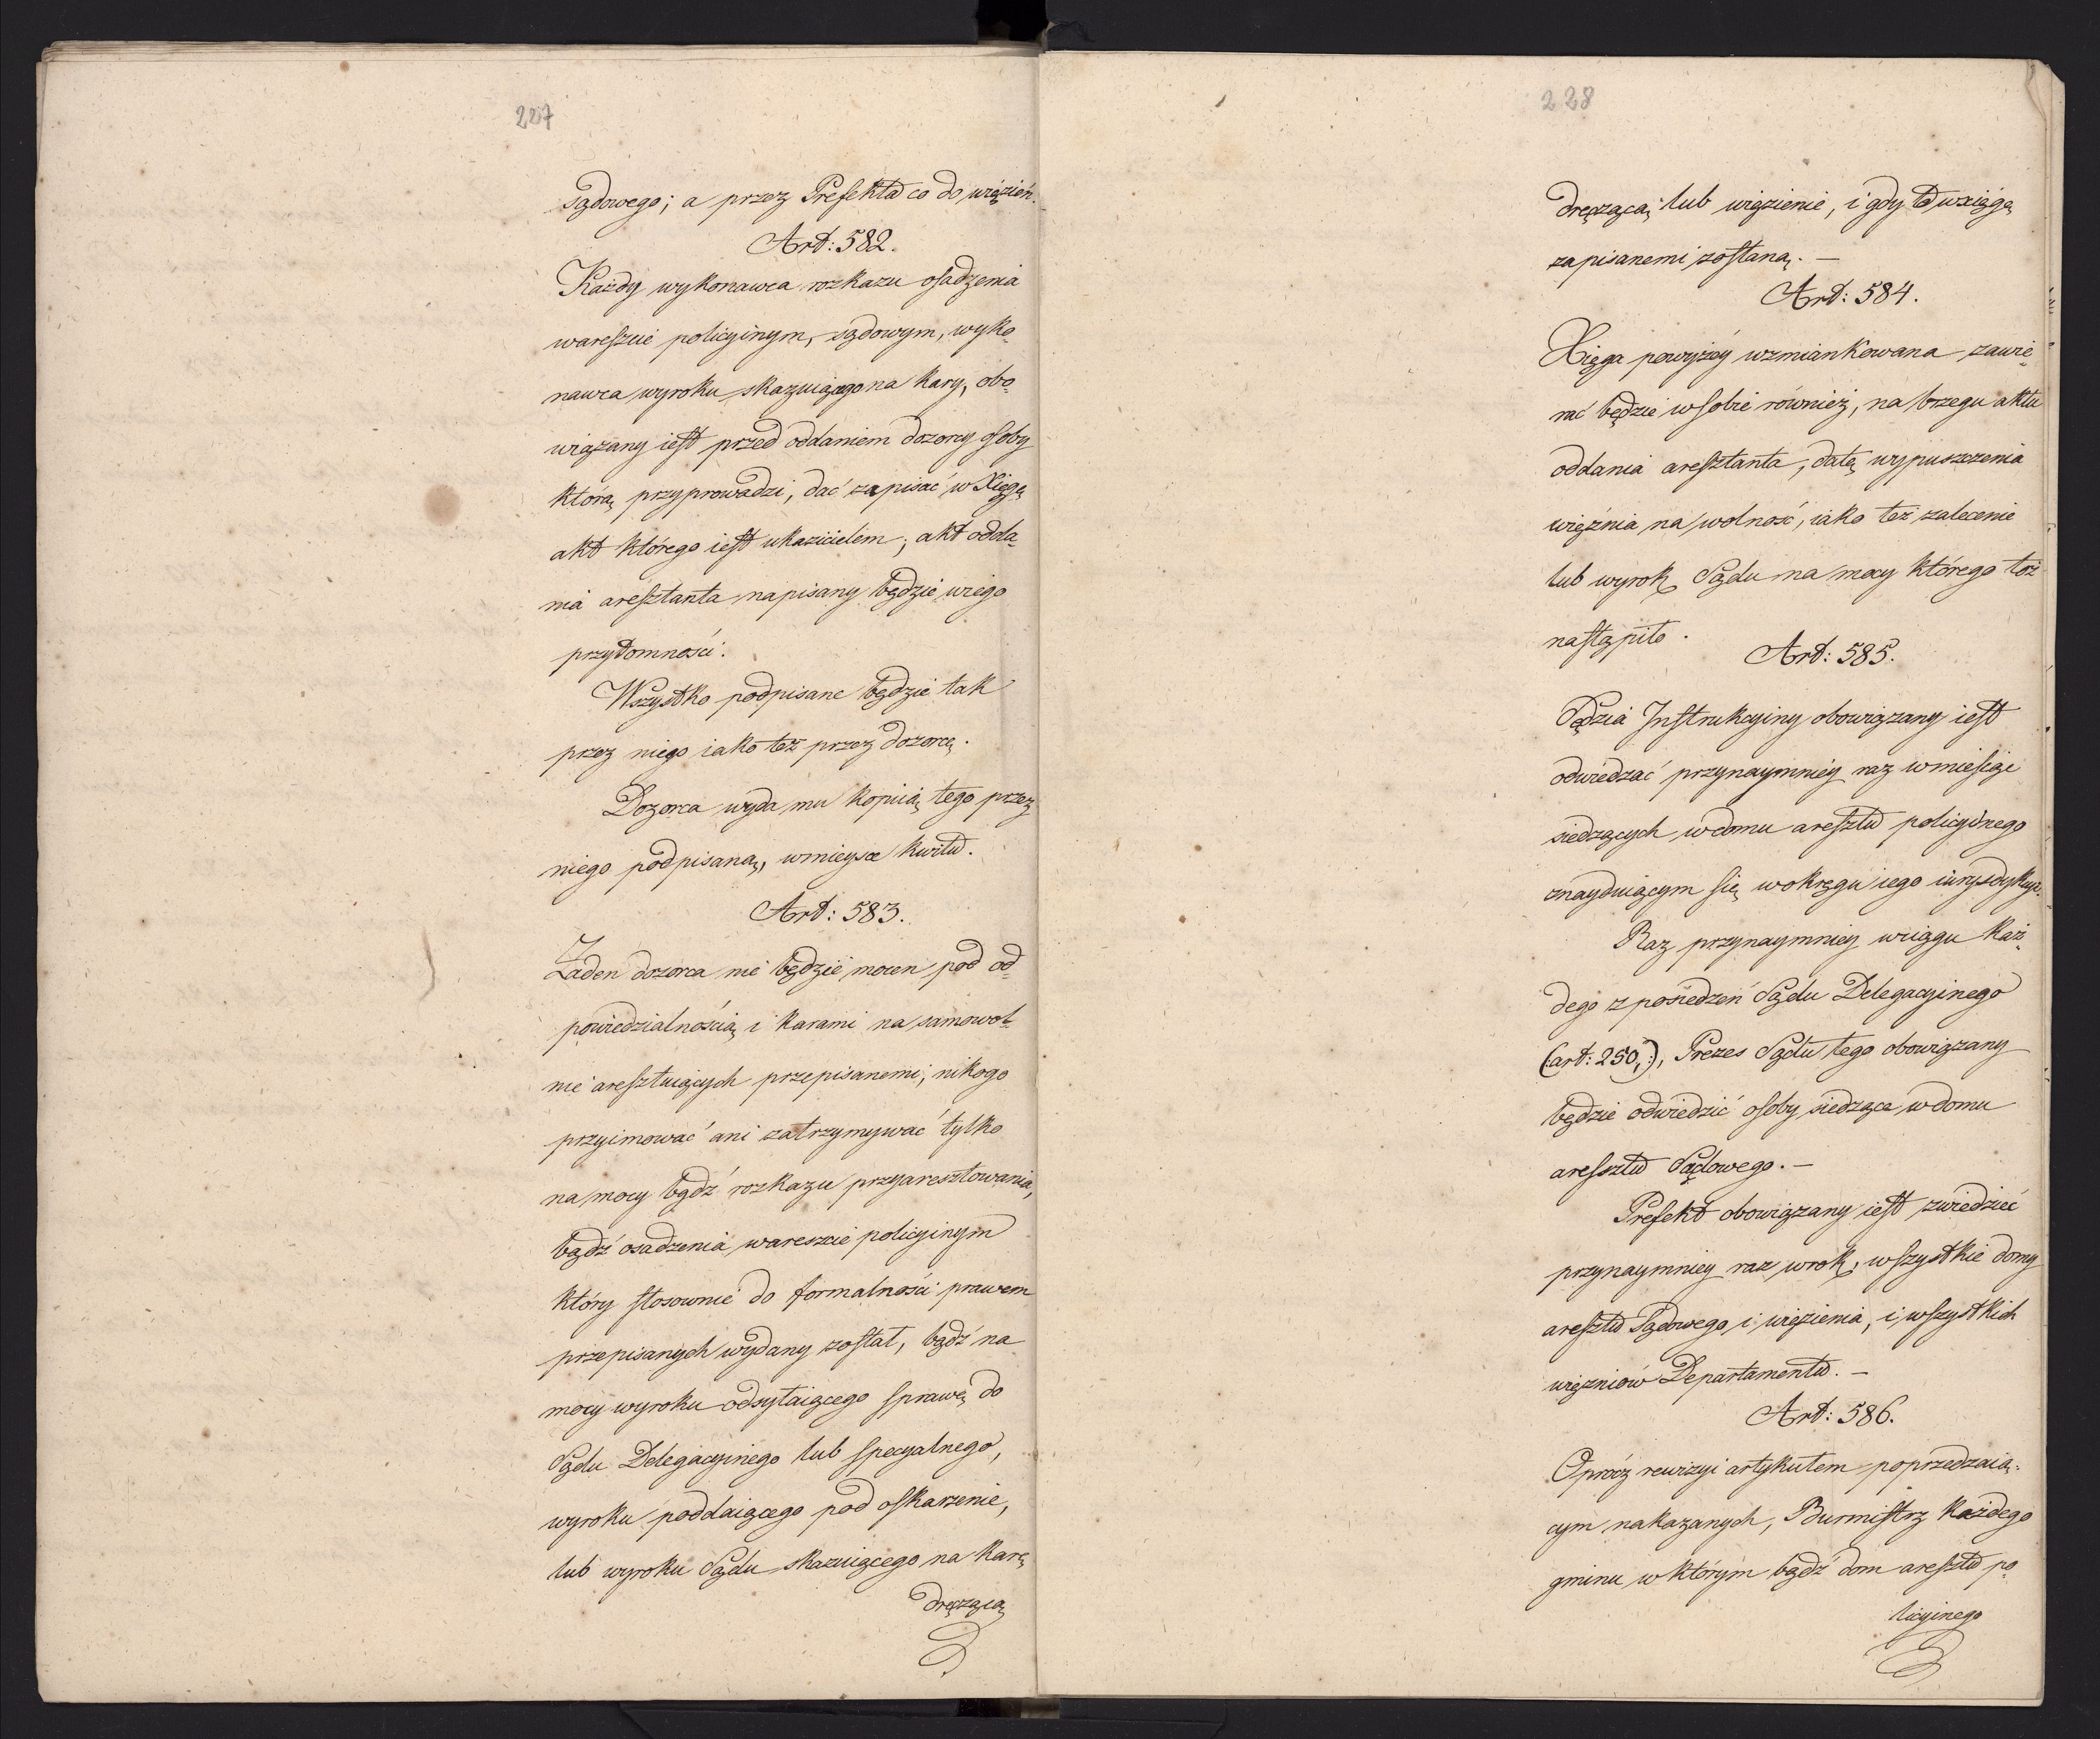 227
Sądowego; a przez Prefekta co do więzień.
Art: 582.
Każdy wykonawca rozkazu osadzenia
wareszcie policyinym, sądowym, wyko-
nawca wyroku skazuiącego na kary, obo-
wiązany iest przed oddaniem dozorcy osoby
którą przyprowadzi, dać zapisać w Xięgę
akt którego iest ukazicielem; akt odda-
nia aresztanta napisany będzie wiego
przytomności.
Wszystko podpisane będzie tak
przez niego iako też przez dozorcę.
Dozorca wyda mu kopiią tego przez
niego podpisaną, wmieysce kwitu.
Art: 583.
Żaden dozorca nie będzie mocen pod od-
powiedzialnością i karami na samowol-
nie aresztuiących przepisanemi, nikogo
przyimować ani zatrzymywać tylko
na mocy bądź rozkazu przyaresztowania,
bądź osadzenia wareszcie policyinym
który stosownie do formalności prawem
przepisanych wydany został, bądź na
mocy wyroku odsyłaiącego sprawę do
Sądu Delegacyinego lub specyalnego,
wyroku poddaiącego pod oskarzenie,
lub wyroku Sądu skazuiącego na karę
dręczącą
228
dręczącą lub więzienie, i gdy te wxięgę
zapisanemi zostaną. —
Art: 584.
Xięga powyżéy wzmiankowana zawie-
rać będzie wsobie również, na brzegu aktu
oddania aresztanta, datę wypuszczenia
więźnia na wolność, iako też zalecenie
lub wyrok Sądu na mocy którego toż
nastąpiło.
Art: 585.
Sędzia Instrukcyiny obowiązany iest
odwiedzać przynaymniéy raz wmiesiąc
siedzących wdomu aresztu policyinego
znayduiącym się wokręgu iego iurysdykcyi.
Raz przynaymniey wciągu każ-
dego z posiedzeń Sądu Delegacyinego
(art: 250,:), Prezes Sądu tego obowiązany
będzie odwiedzić osoby siedzące wdomu
aresztu Sądowego. —
Prefekt obowiązany iest zwiedzieć
przynaymniey raz wrok, wszystkie domy
aresztu Sądowego i więzienia, i wszystkich
więzniów Departamentu. —
Art: 586.
Oprócz rewizyi artykułem poprzedzaią-
cym nakazanych, Burmistrz każdego
gminu w którym bądź dom aresztu po-
licyinego